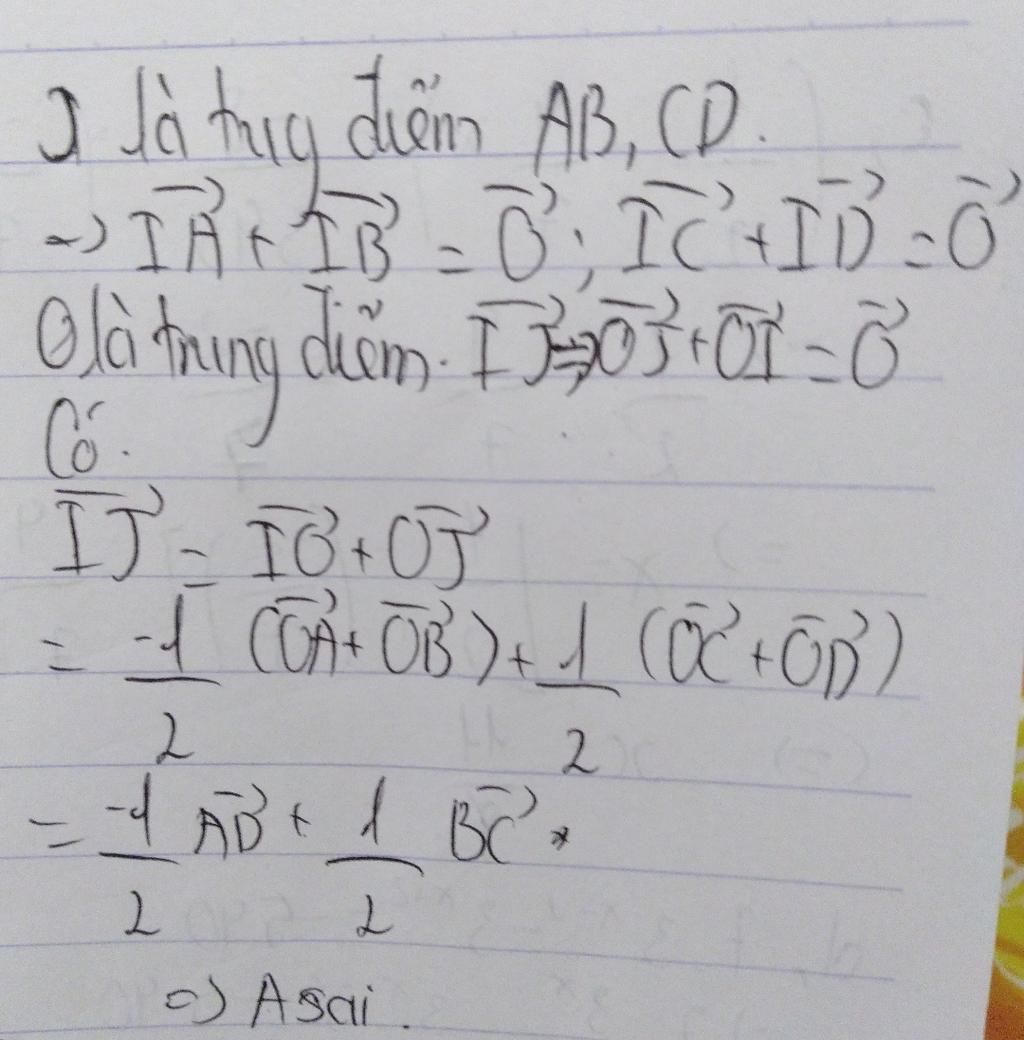 J là trug điểm AB, CD.
=> IA + IB = O; IC + ID = O
O là trung điểm. IJ => OJ + OI = O
Có.
IJ = IO + OJ
= -1/2 (OA + OB) + 1/2 (OC + OD)
= -1/2 AD + 1/2 BC *
=> A sai.